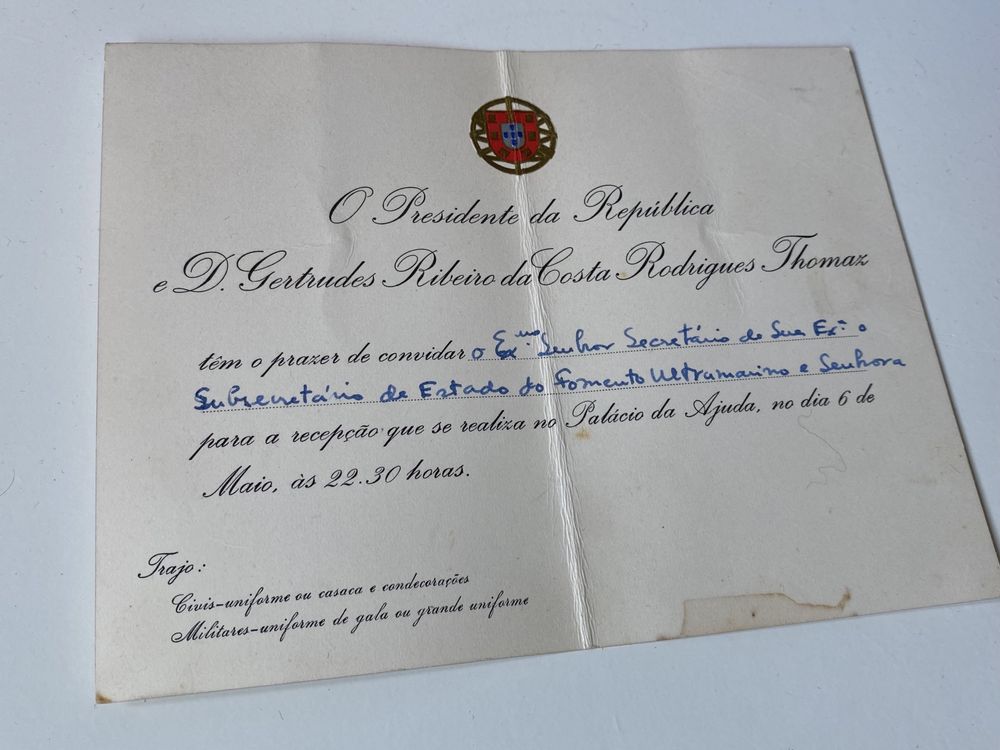 O Presidente da República
e D. Gertrudes Ribeiro da Costa Rodrigues Thomaz
têm o prazer de convidar o Exmo. Senhor Secretário de Sua Exª o
Subsecretário de Estado do Fomento Ultramarino e Senhora
para a recepção que se realiza no Palácio da Ajuda, no dia 6 de
Maio, às 22.30 horas.
Trajo:
Civis-uniforme ou casaca e condecorações
Militares-uniforme de gala ou grande uniforme